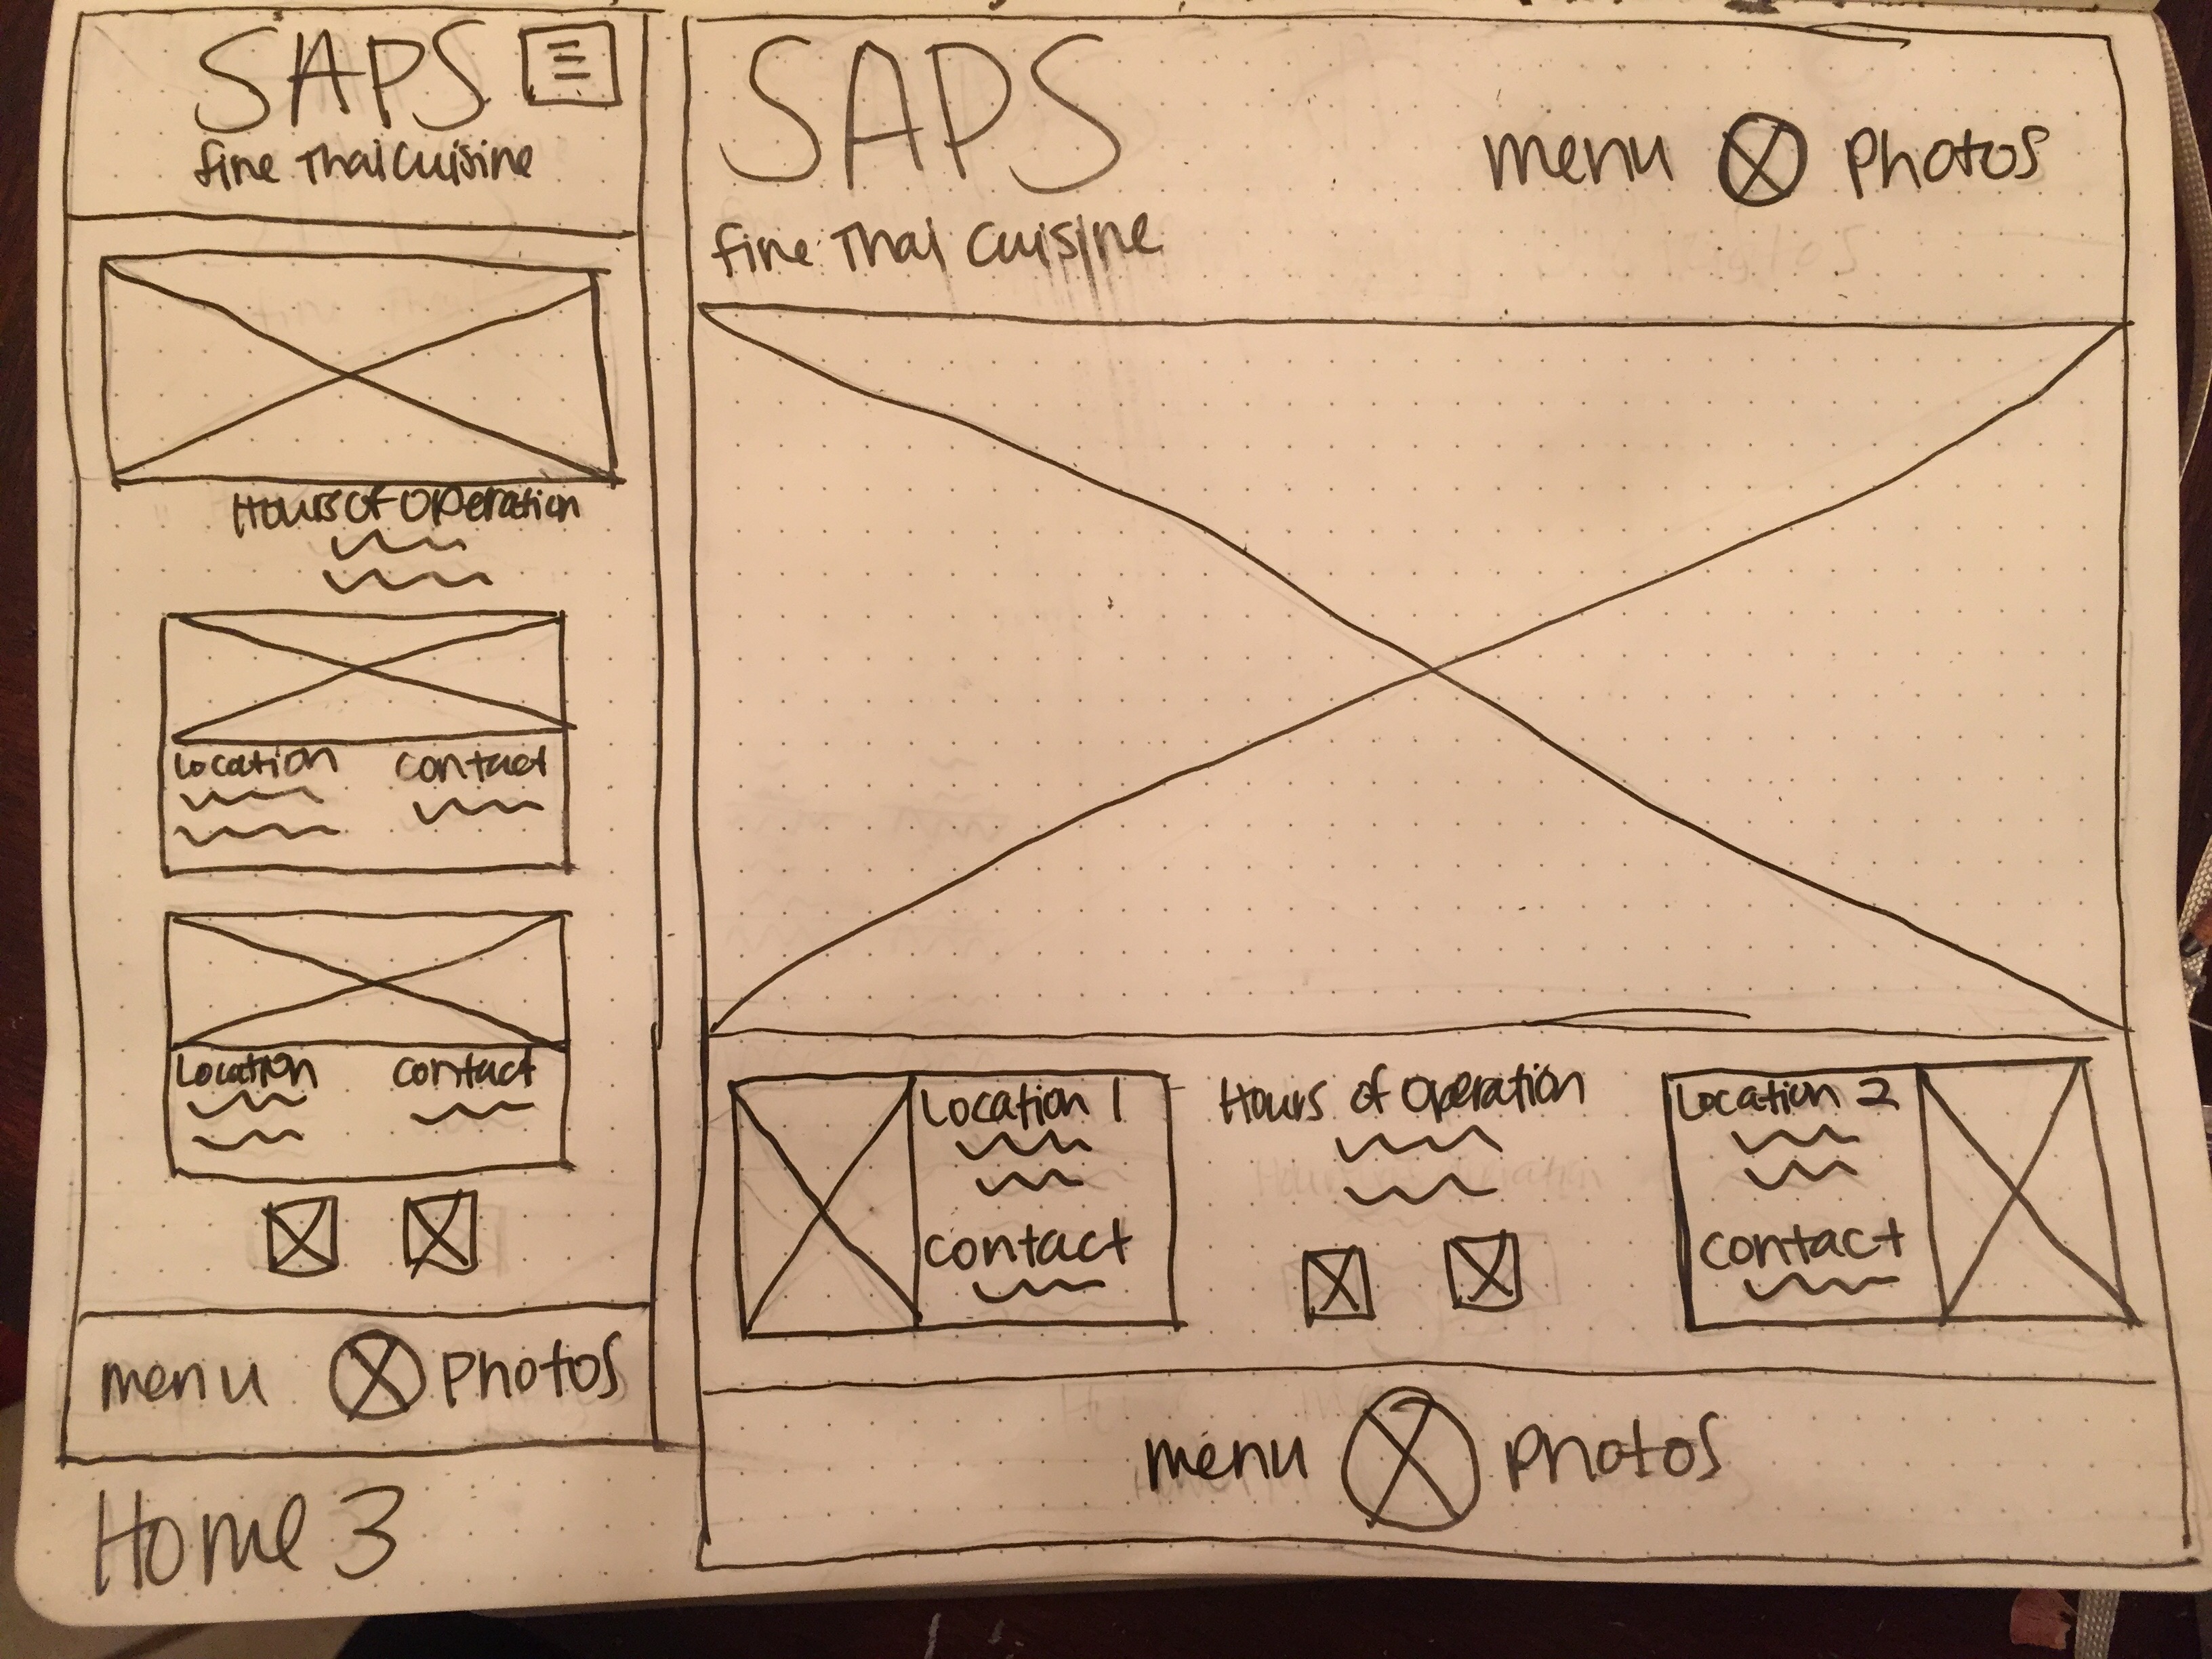 SAPS
fine Thai Cuisine
Hours of Operation
Location contact
Location contact
menu photos
Home 3
SAPS
fine Thai Cuisine
menu photos
Location 1
contact
Hours of Operation
Location 2
contact
menu photos